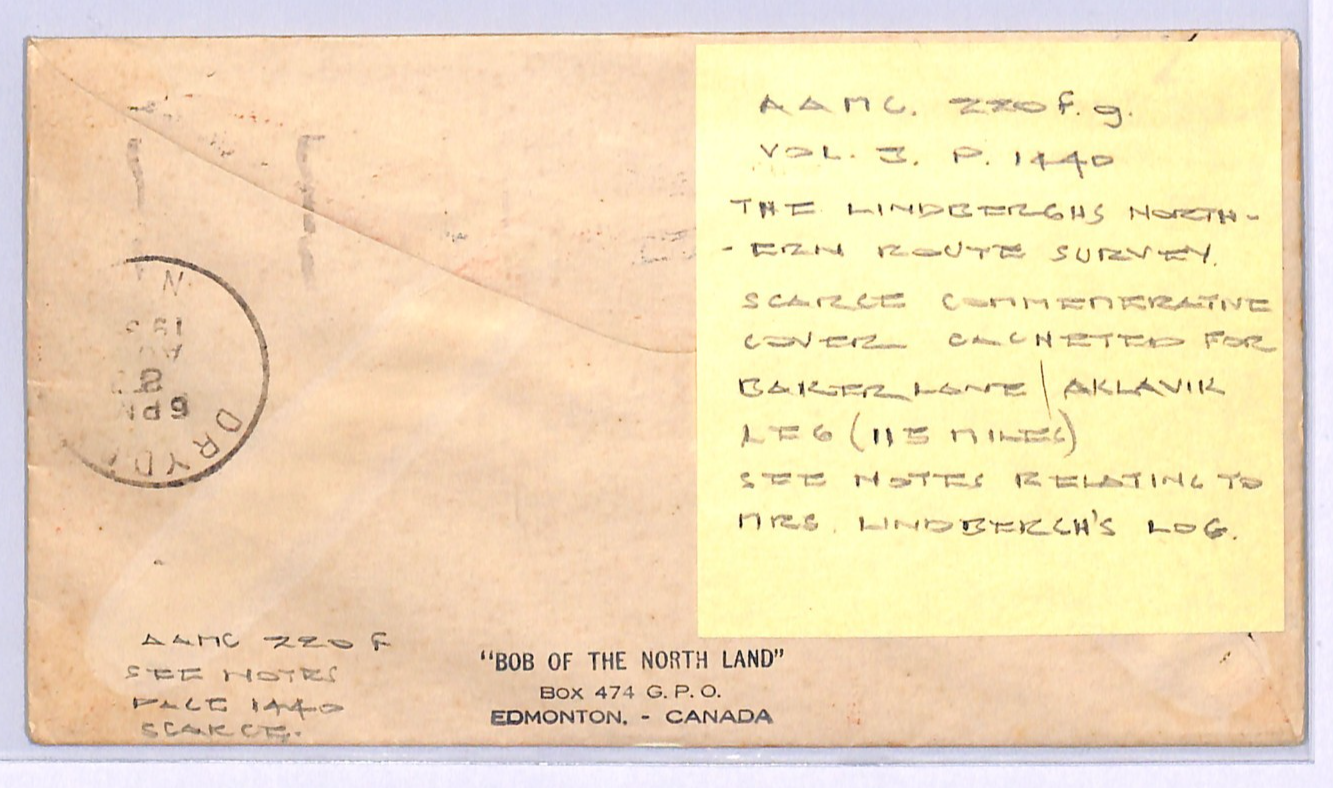 AAMC. 220 f. g.
VOL. 3. P. 1440
THE LINDBERGHS NORTH-
- ERN ROUTE SURVEY.
SCARCE COMMEMERATIVE
COVER CACHETED FOR
BAKER LANE / AKLAVIK
LEG (115 MILES)
SEE NOTES RELATING TO
MRS. LINDBERGH'S LOG.
6PM
AAMC 220 f
SEE NOTES
PAGE 1440
SCARCE.
"BOB OF THE NORTH LAND"
BOX 474 G. P. O.
EDMONTON. - CANADA